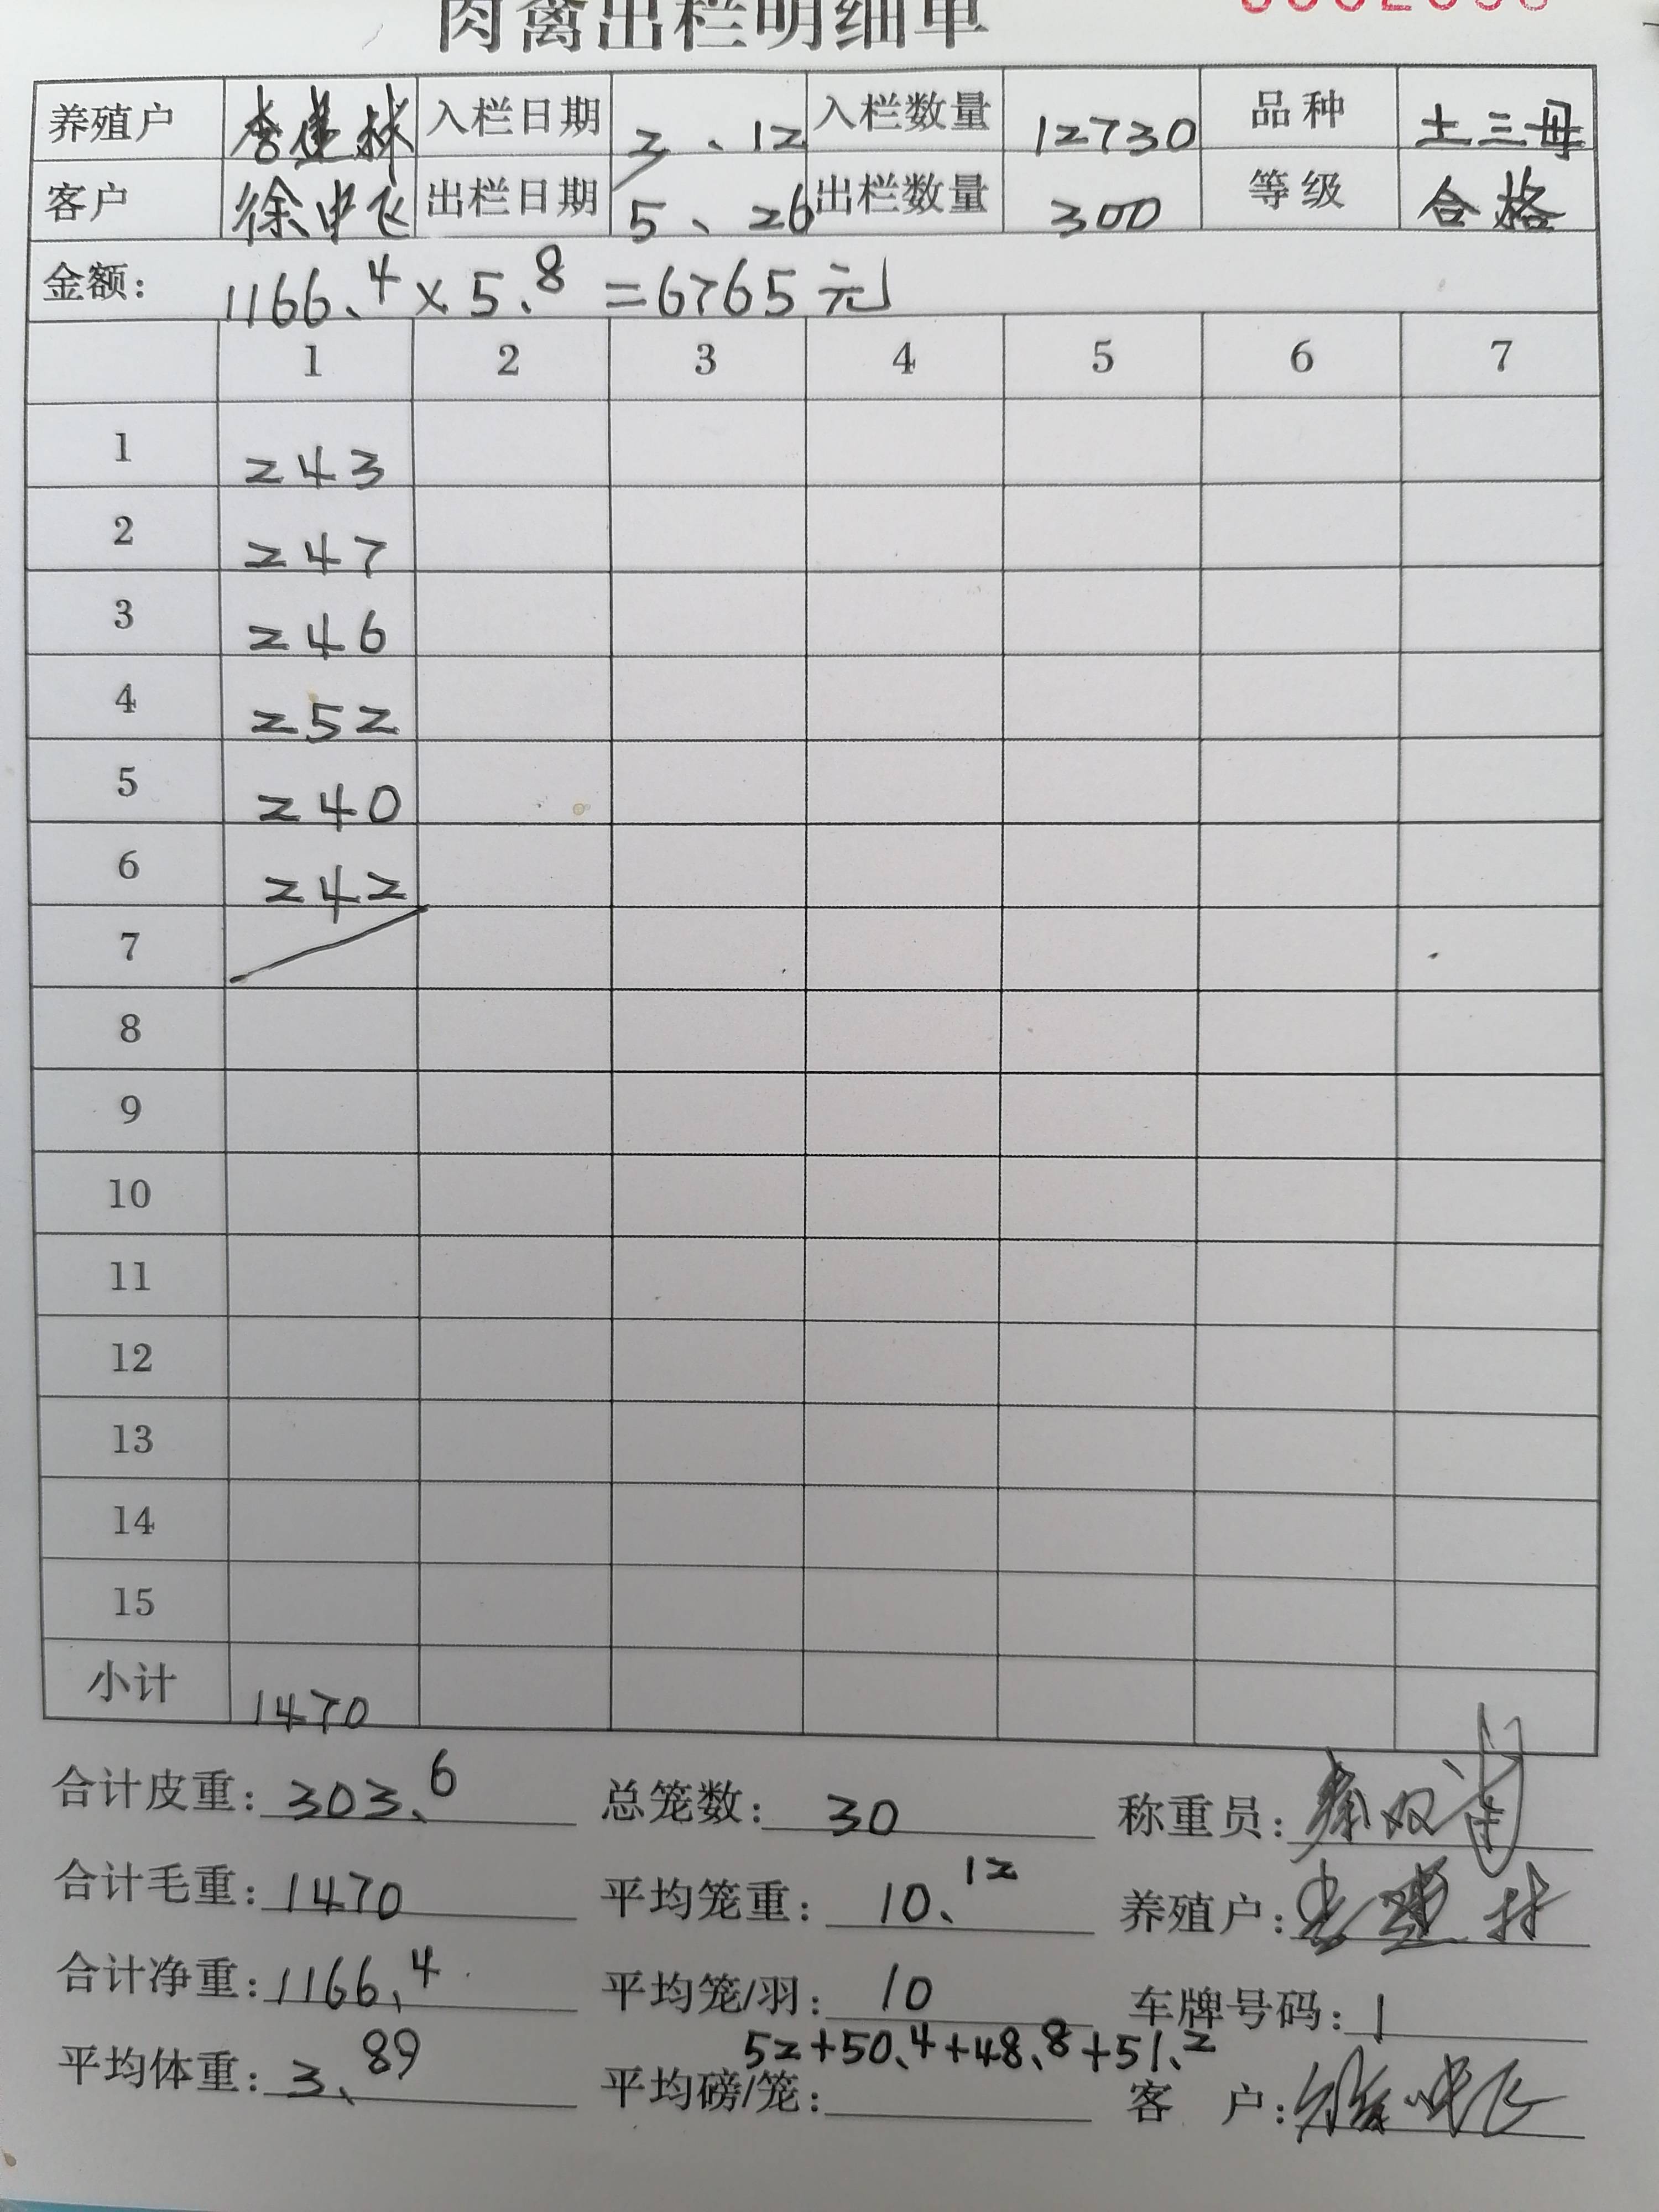 肉禽出栏明细单
养殖户 李建林 入栏日期 3、12 入栏数量 12730 品种 土三母
客户 徐中飞 出栏日期 5、26 出栏数量 300 等级 合格
金额： 1166、4×5、8=6765元
1 2 3 4 5 6 7
1 243
2 247
3 246
4 252
5 240
6 242
7
8
9
10
11
12
13
14
15
小计 1470
合计皮重：303、6 总笼数：30 称重员：
合计毛重：1470 平均笼重：10、12 养殖户：李建林
合计净重：1166、4 平均笼/羽：10 车牌号码：1
52+50、4+48、8+51、2
平均体重：3、89 平均磅/笼： 客 户：徐中飞